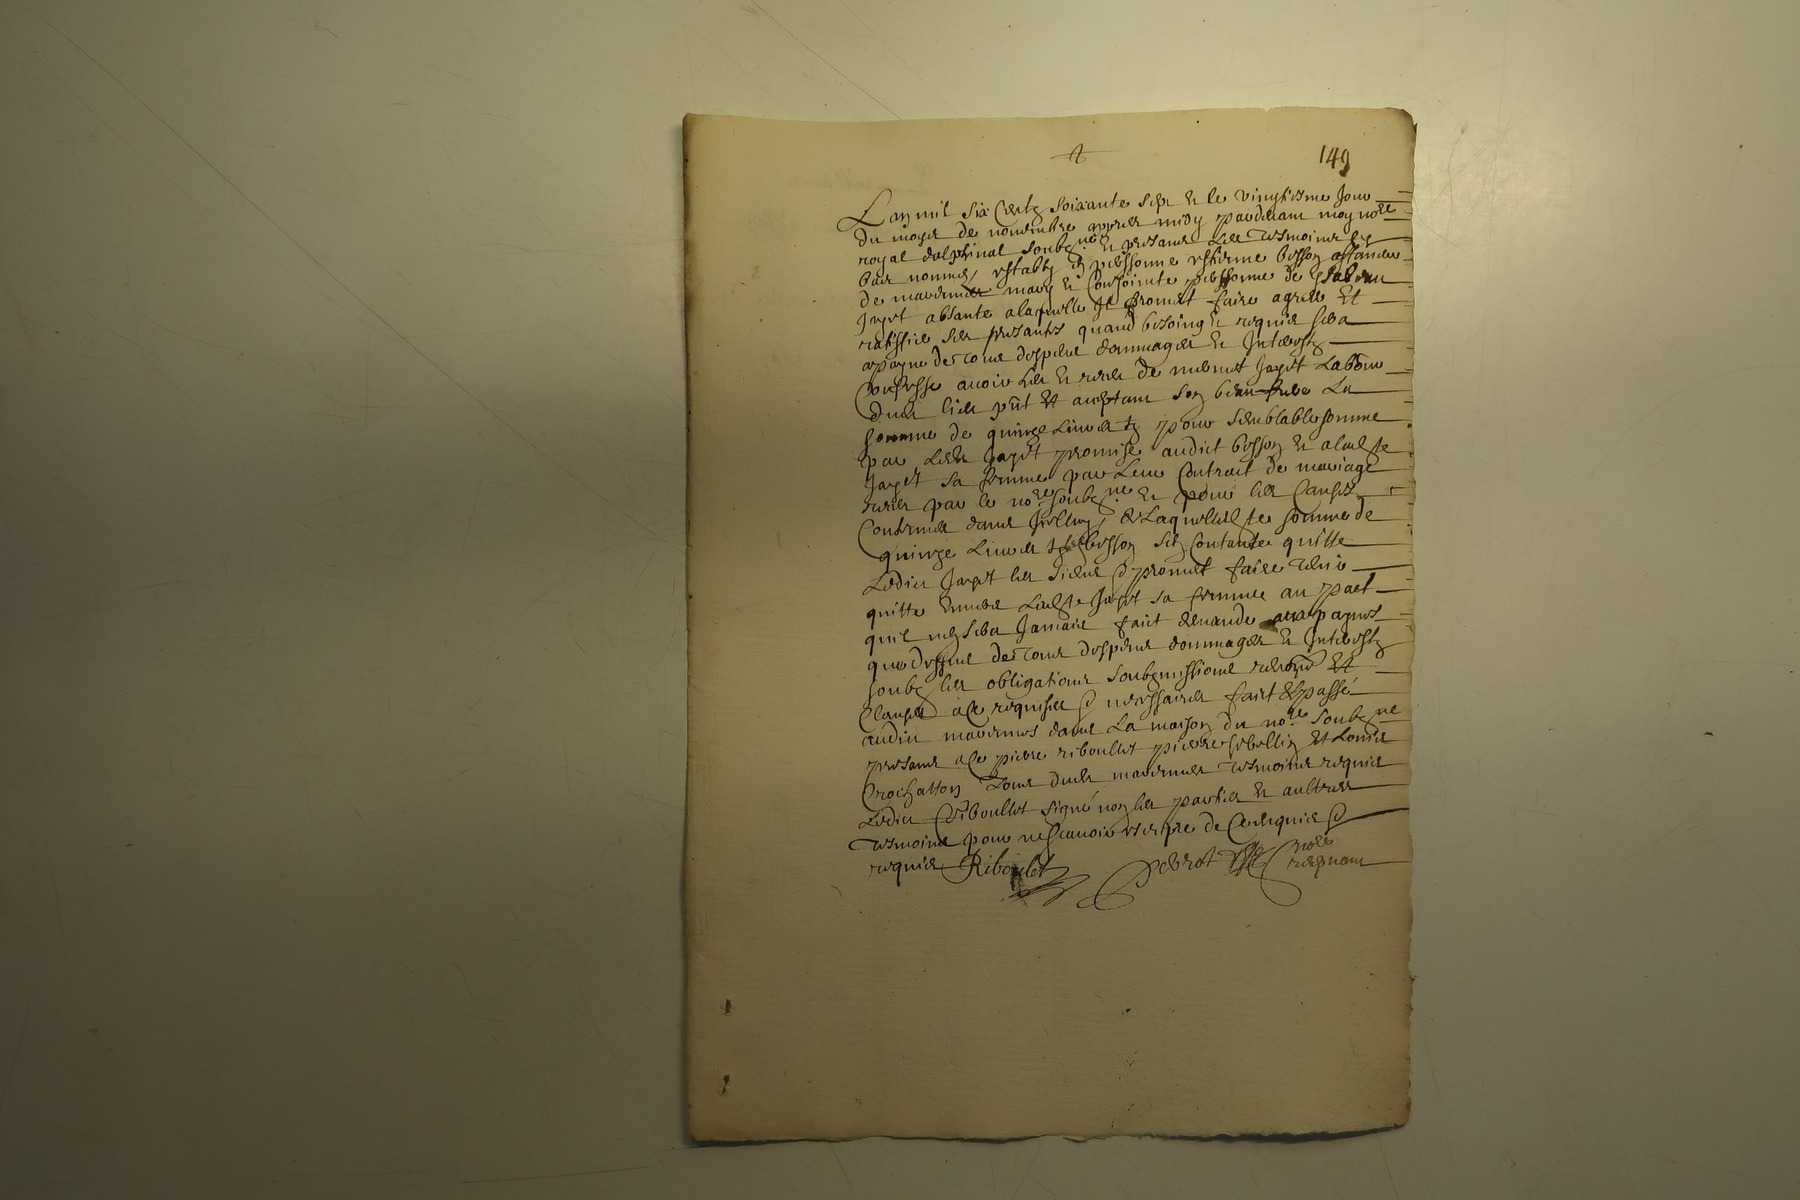 149
Lan mil six centz soixante sept et le vingtiesme jour
du moys de novembre appres midy pardevant moy no.re
royal delphinal soubz.né et presans les tesmoins cy
bas nommes estably en personne estienne besson affaneur
de mary et conjointe personne de ysabeau
Jayet absante a laquelle Il promet faire agreer et
ratiffier ses presantes quand besoing et requier sera
a payne de tous despens dommages et Interestz
confesse avoir heu et receu de Jayet laboureur
dudit lieu p̄nt et aceptant son beau frere la
somme de quinze livres tz pour semblable somme
par ledit Jayet promise audict besson et a ladite
Jayet sa femme par leur contrait de mariage
receu par le no.re soubz.né et pour les causes
contenues dans Icelluy, de laquelle dite somme de
quinze livres besson sen contante quitte
Ledict Jayet les siens & promet faire tenir
quitte envers ladite Jayet sa femme au pact
quil nen sera Jamais faict demande a paynes
que dessus de tous despens dommages et Interestz
soubz les obligations soubzmissions et
clauses a ce requises & necessaires faict et passé
audict dans la maison du no.re soubz.né
presans a ce pierre riboullet pierre et Louis
Crochatton tous dudit tesmoins requis
Ledict Riboullet signé non les parties et aultres
tesmoins pour ne scavoir escripre de ce enquis &
requis Riboulet Perrot no.re
recepvant